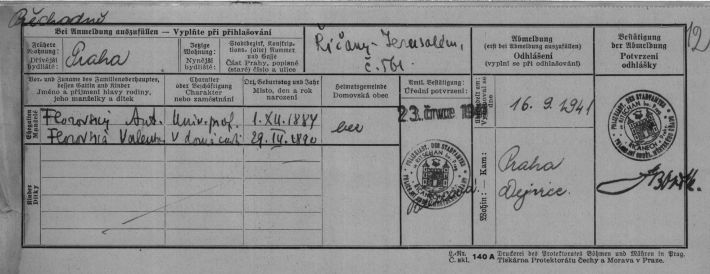 Přechodně
Bei Anmeldung auszufüllen — Vyplňte při přihlašování
Frühere Wohnung:
Dřívější bydliště:
Praha
Jetzige Wohnung:
Nynější bydliště:
Stadtbezirk, Konskriptions. (alte) Nummer und Gasse
Část Prahy, popisné (staré) číslo a ulice
Říčany-Jerusalém,
č. 561.
Abmeldung
(erst bei Abmeldung auszufüllen)
Odhlášení
(vyplní se při odhlašování)
Bestätigung der Abmeldung
Potvrzení odhlášky
12
Vor- und Zuname des Familienoberhauptes, dessen Gattin und Kinder
Jméno a příjmení hlavy rodiny, jeho manželky a dítek
Charakter oder Beschäftigung
Charakter neb zaměstnání
Ort, Geburtstag und Jahr
Místo, den a rok narození
Heimatsgemeinde
Domovská obec
Amtl. Bestätigung:
Úřední potvrzení:
Ehegatten
Manželé
Florovský Ant. Univ. prof. 1. XII. 1884
Florovská Valent. v domácnosti 29. IV. 1890
bez
23. července 1941
16. 9. 1941
Kinder
Dítky
Wohin: — Kam:
Praha
Dejvice.
L.-Nr.
Č. skl. 140 A
Druckerei des Protektorates Böhmen und Mähren in Prag.
Tiskárna Protektorátu Čechy a Morava v Praze.